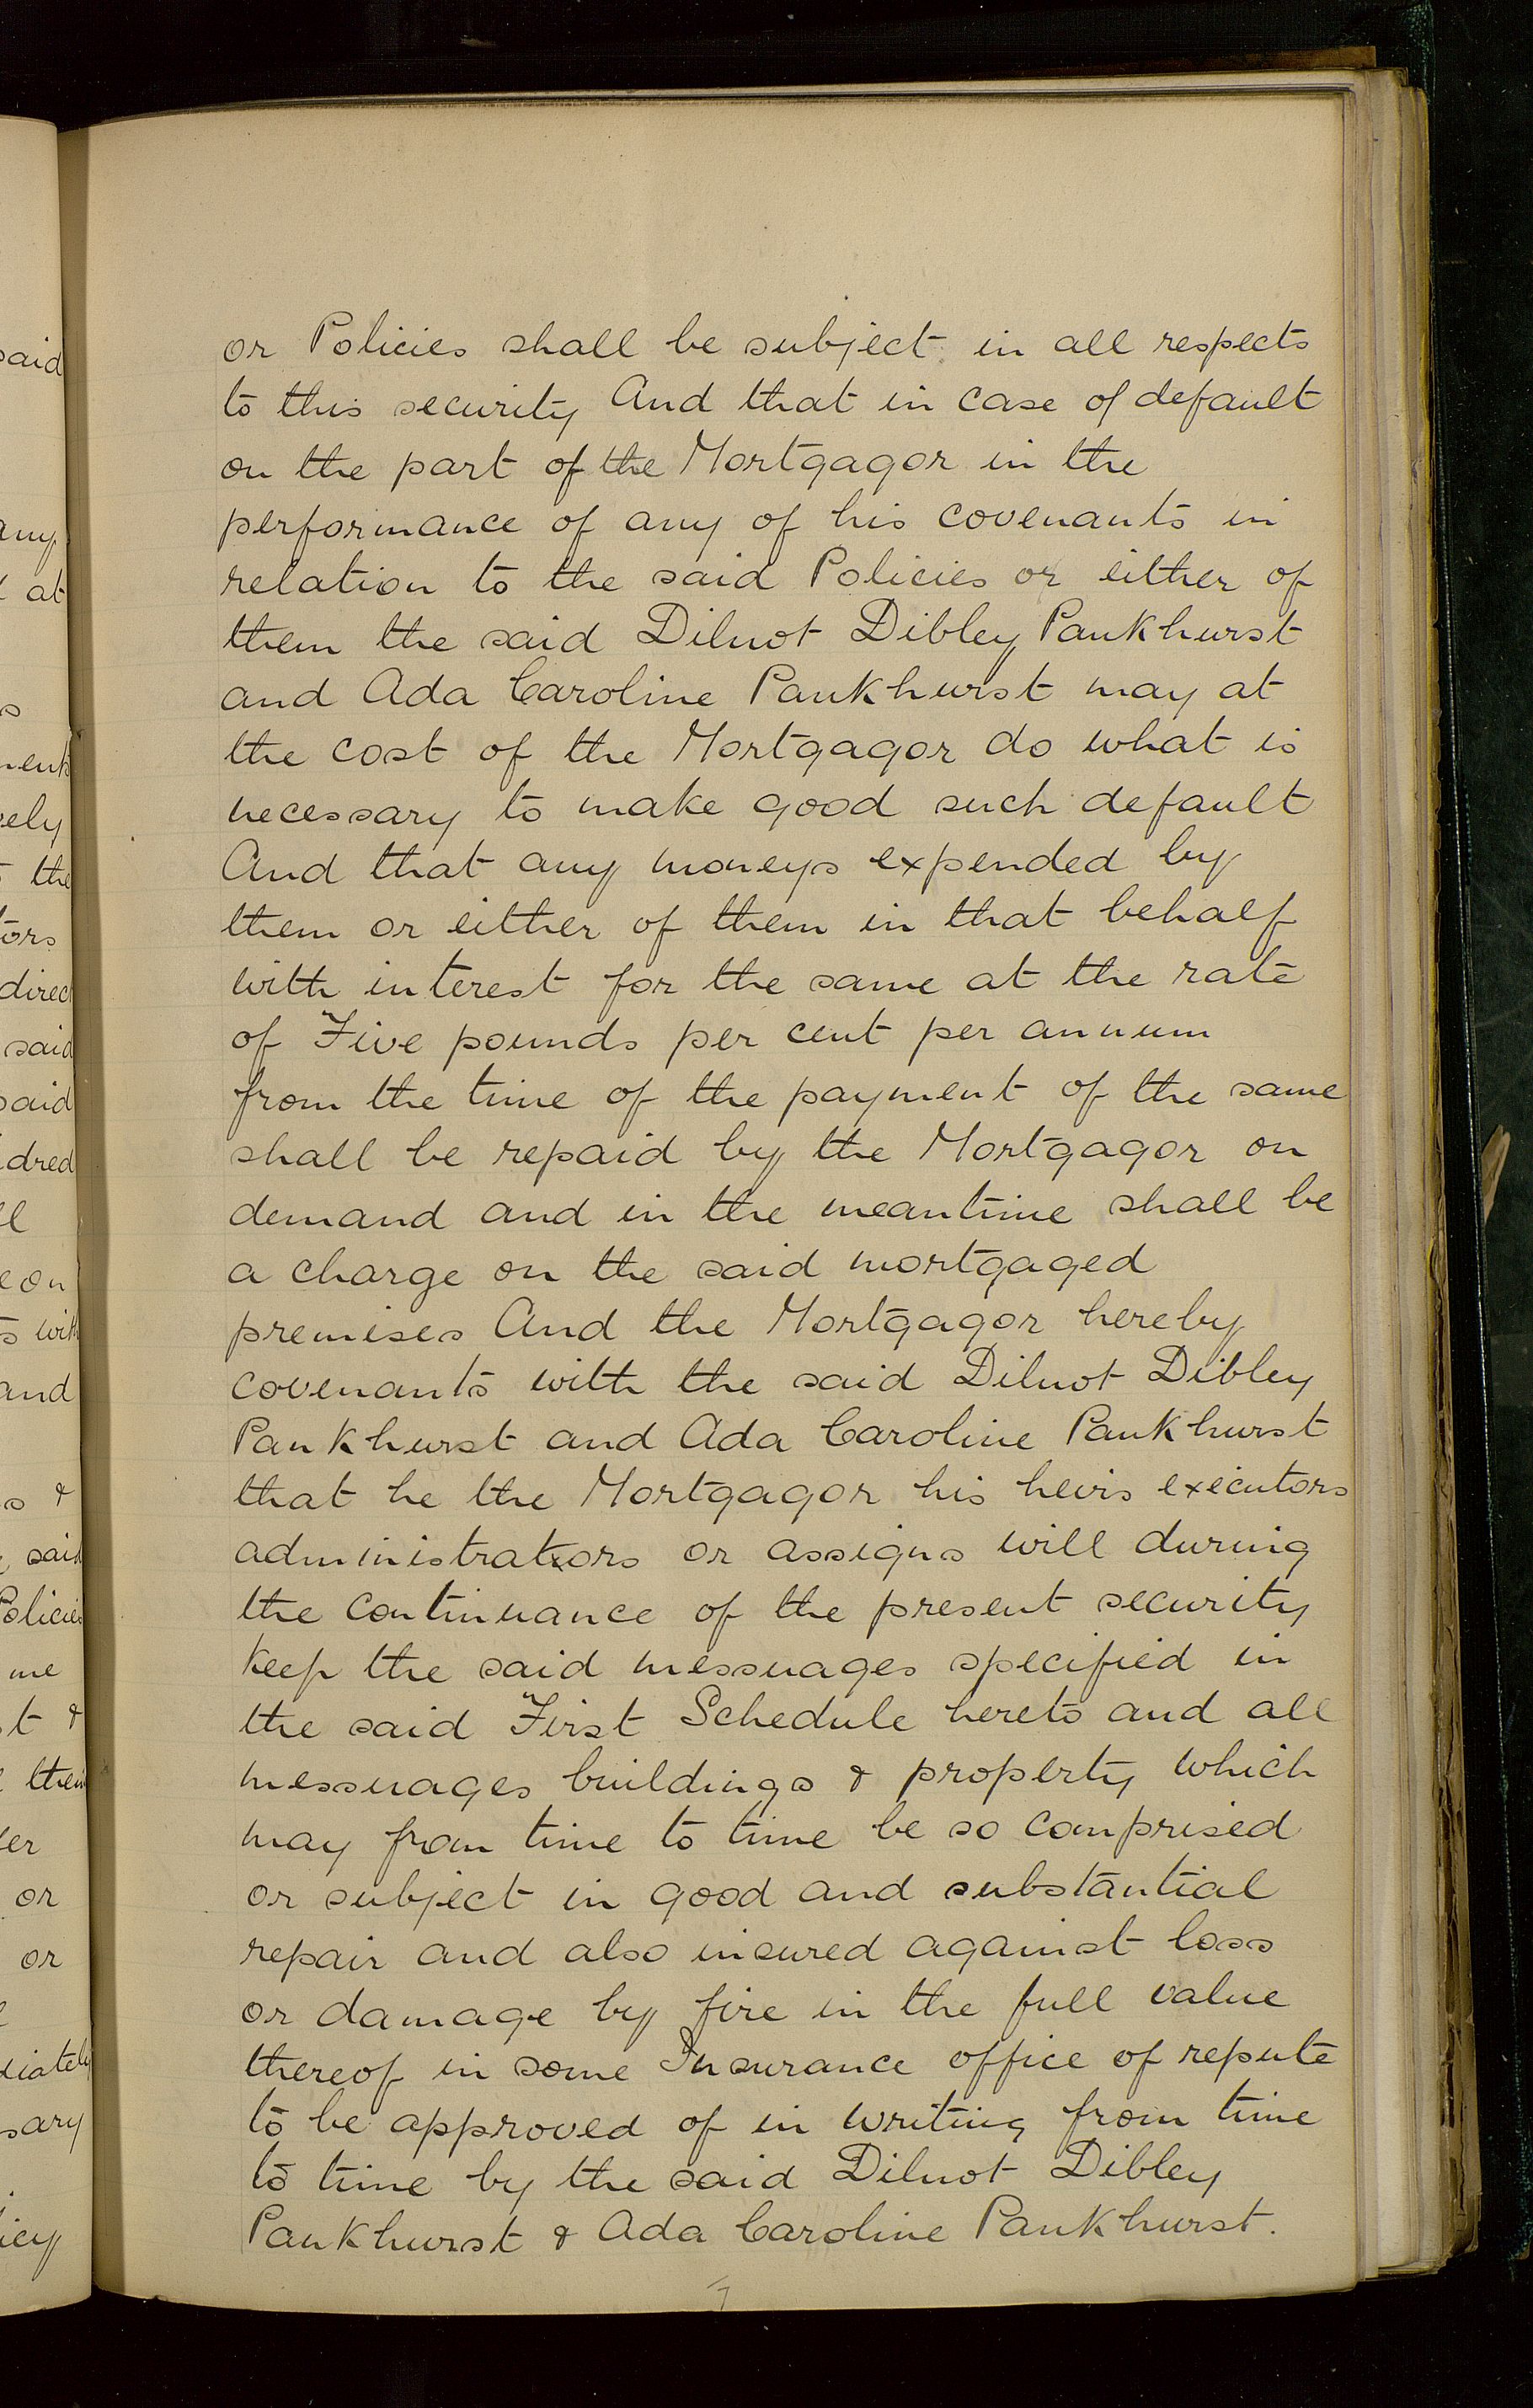 or Policies shall be subject in all respects
to this security And that in case of default
on the part of the Mortgagor in the
performance of any of his covenants in
relation to the said Policies or either of
them the said Dilnot Dibley Pankhurst
and Ada Caroline Pankhurst may at
the cost of the Mortgagor do what is
necessary to make good such default
And that any moneys expended by
them or either of them in that behalf
with interest for the same at the rate
of Five pounds per cent per annum
from the time of the payment of the same
shall be repaid by the Mortgagor on
demand and in the meantime shall be
a charge on the said mortgaged
premises And the Mortgagor hereby
covenants with the said Dilnot Dibley
Pankhurst and Ada Caroline Pankhurst
that he the Mortgagor his heirs executors
administrators or assigns will during
the continuance of the present security
keep the said messuages specified in
the said First Schedule hereto and all
messuages buildings & property which
may from time to time be so comprised
or subject in good and substantial
repair and also insured against loss
or damage by fire in the full value
thereof in some Insurance office of repute
to be approved of in writing from time
to time by the said Dilnot Dibley
Pankhurst & Ada Caroline Pankhurst.
7